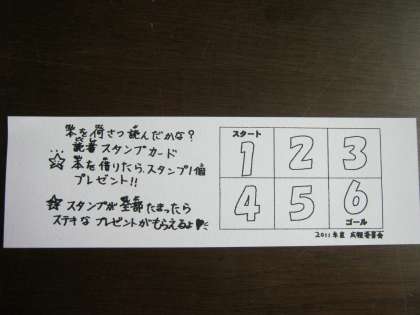 本を何さつ読んだかな?
読書スタンプカード
☆ 本を借りたら、スタンプ1個
プレゼント!!
☆ スタンプが全部たまったら
ステキなプレゼントがもらえるよ
スタート
1 2 3
4 5 6
ゴール
2011年度 委員会